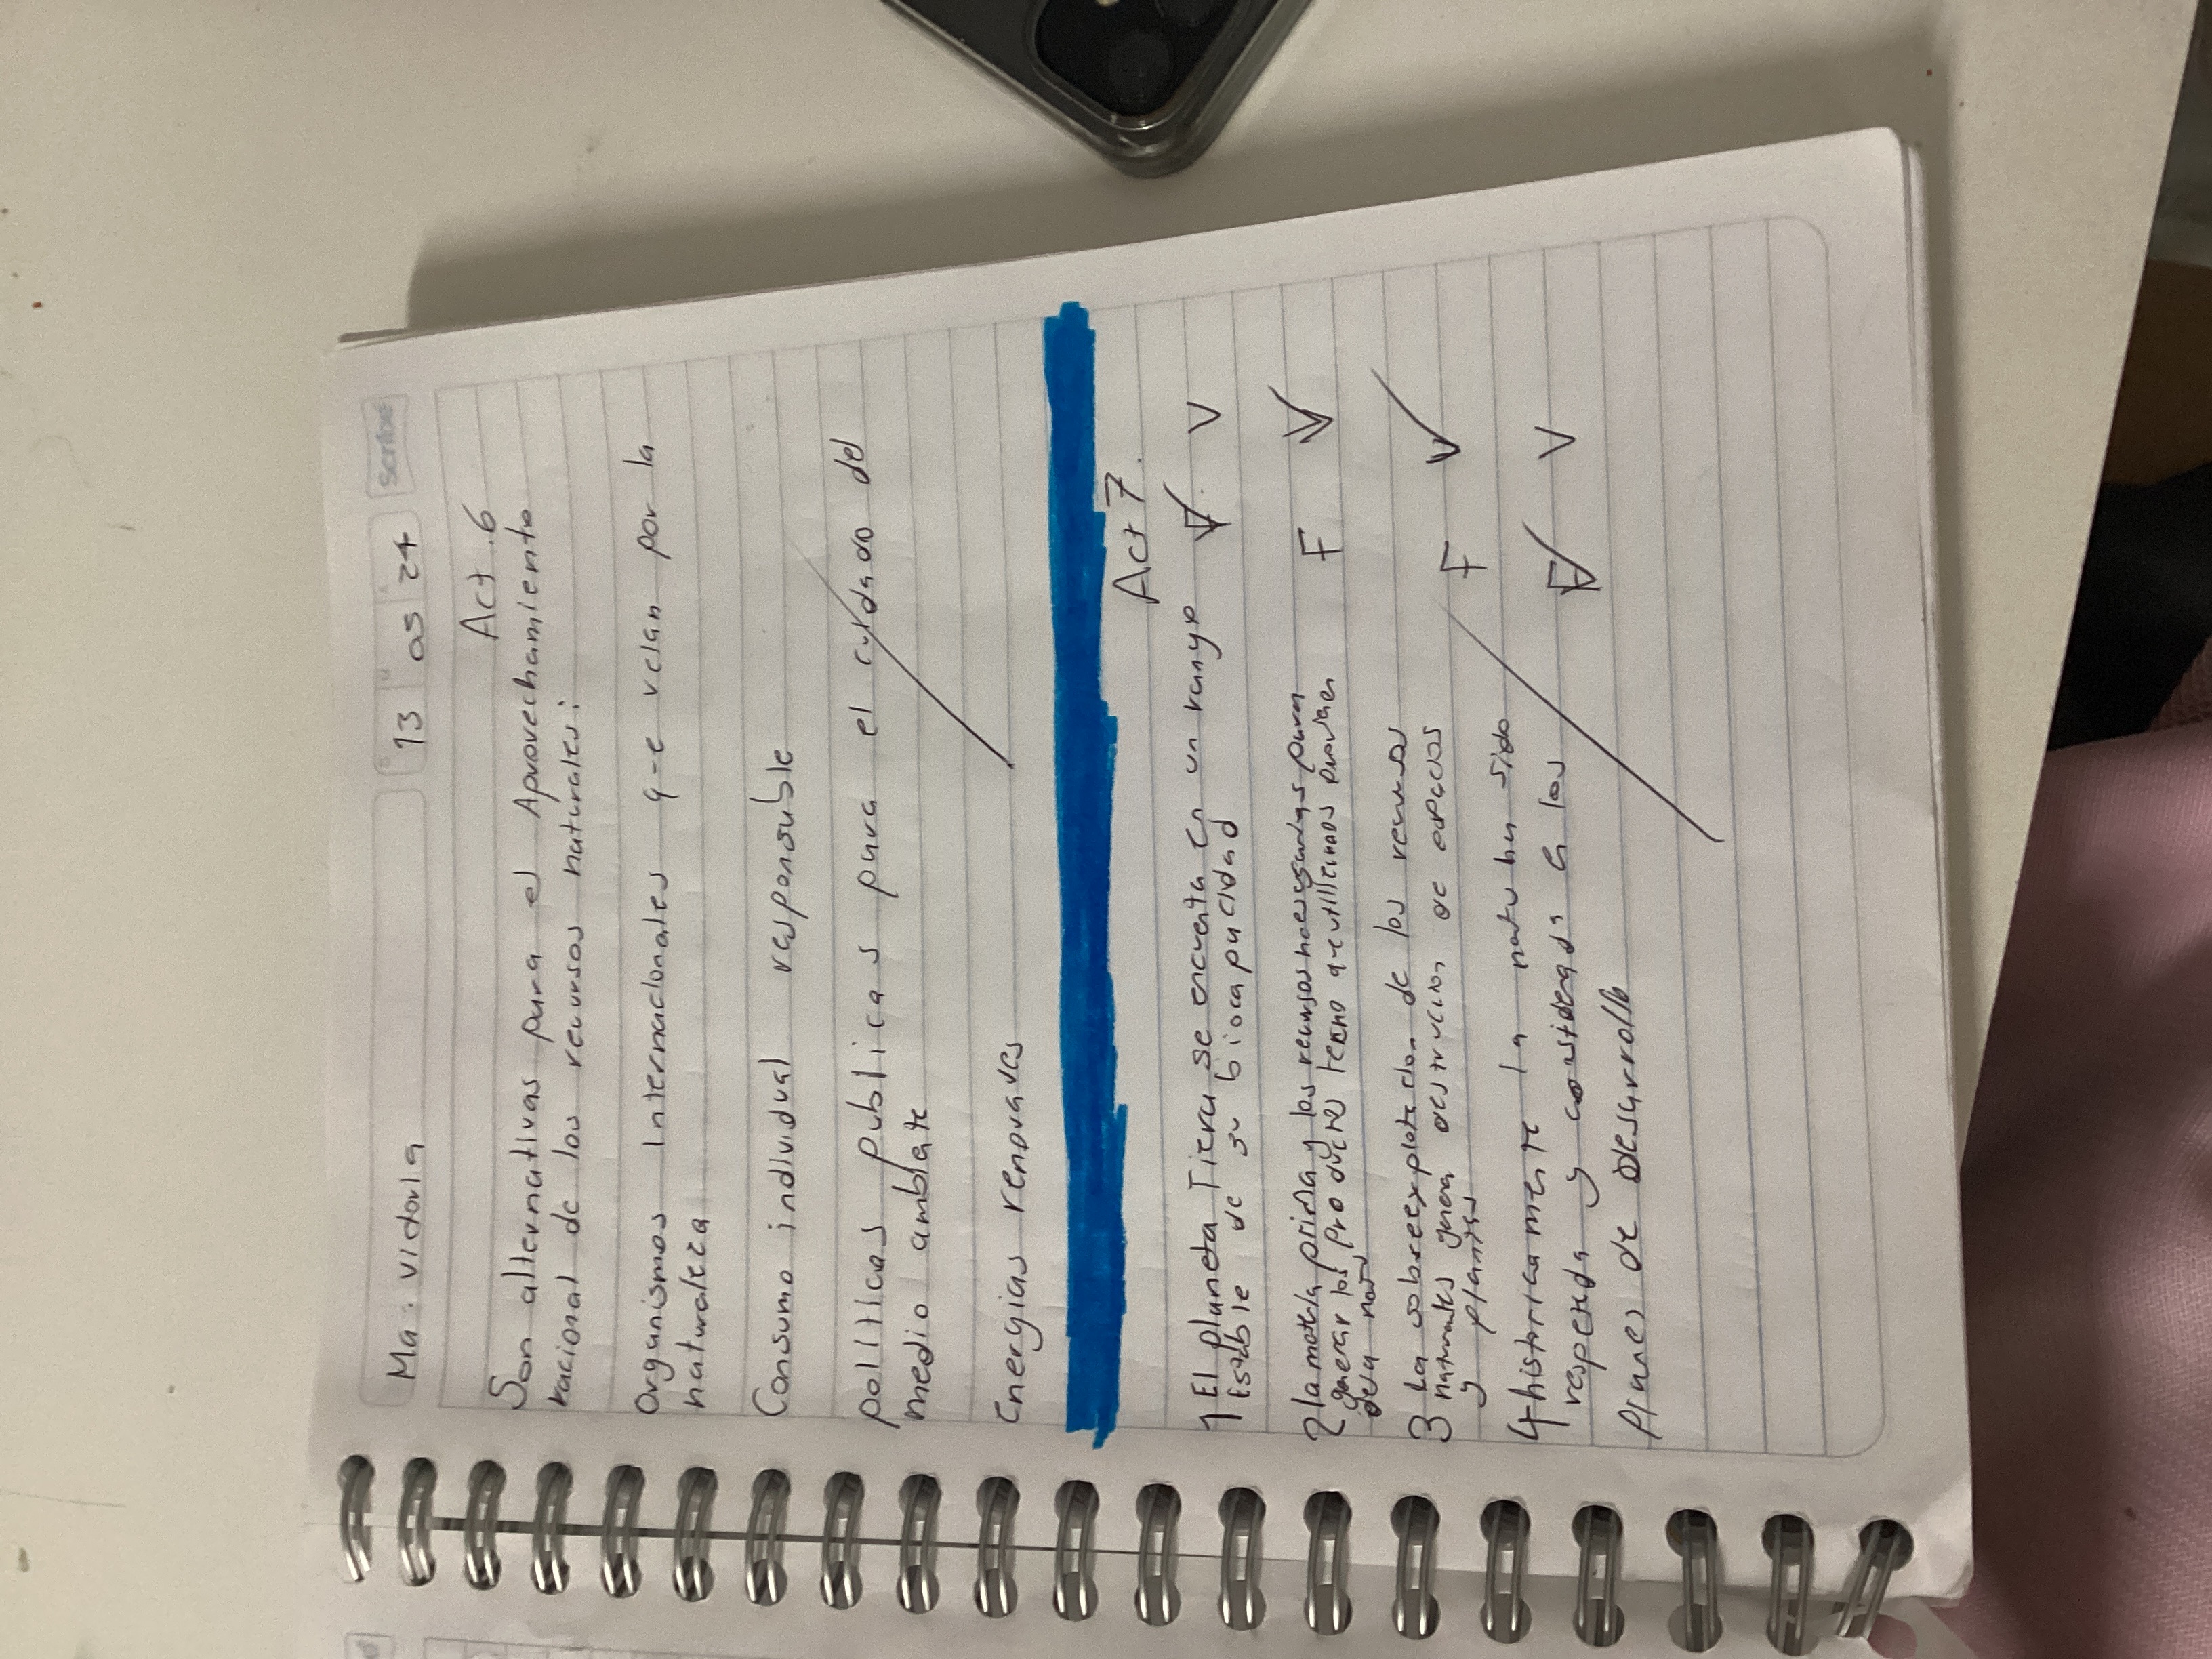 Ma. Victoria
13 05 24 scribe
Act. 6
Son alternativas para el Aprovechamiento
racional de los recursos naturales:
Organismos internacionales que velan por la
naturaleza
Consumo individual responsable
politicas publicas para el cuidado del
medio ambiate
Energias renovaves
Act 7.
1 El planeta Tierra se encueta en un rango F V
Estable de su biocapacidad
2 la materia prima y los recursos necesarios para F V
generar los productos que utilizamos provien
de la
3 La sobreexplotacion de los recursos F V
naturales genera destrucion de especies
y plantas
4 historicamente la natu ha sido
respetada y considerada en los F V
planes de desarrollo